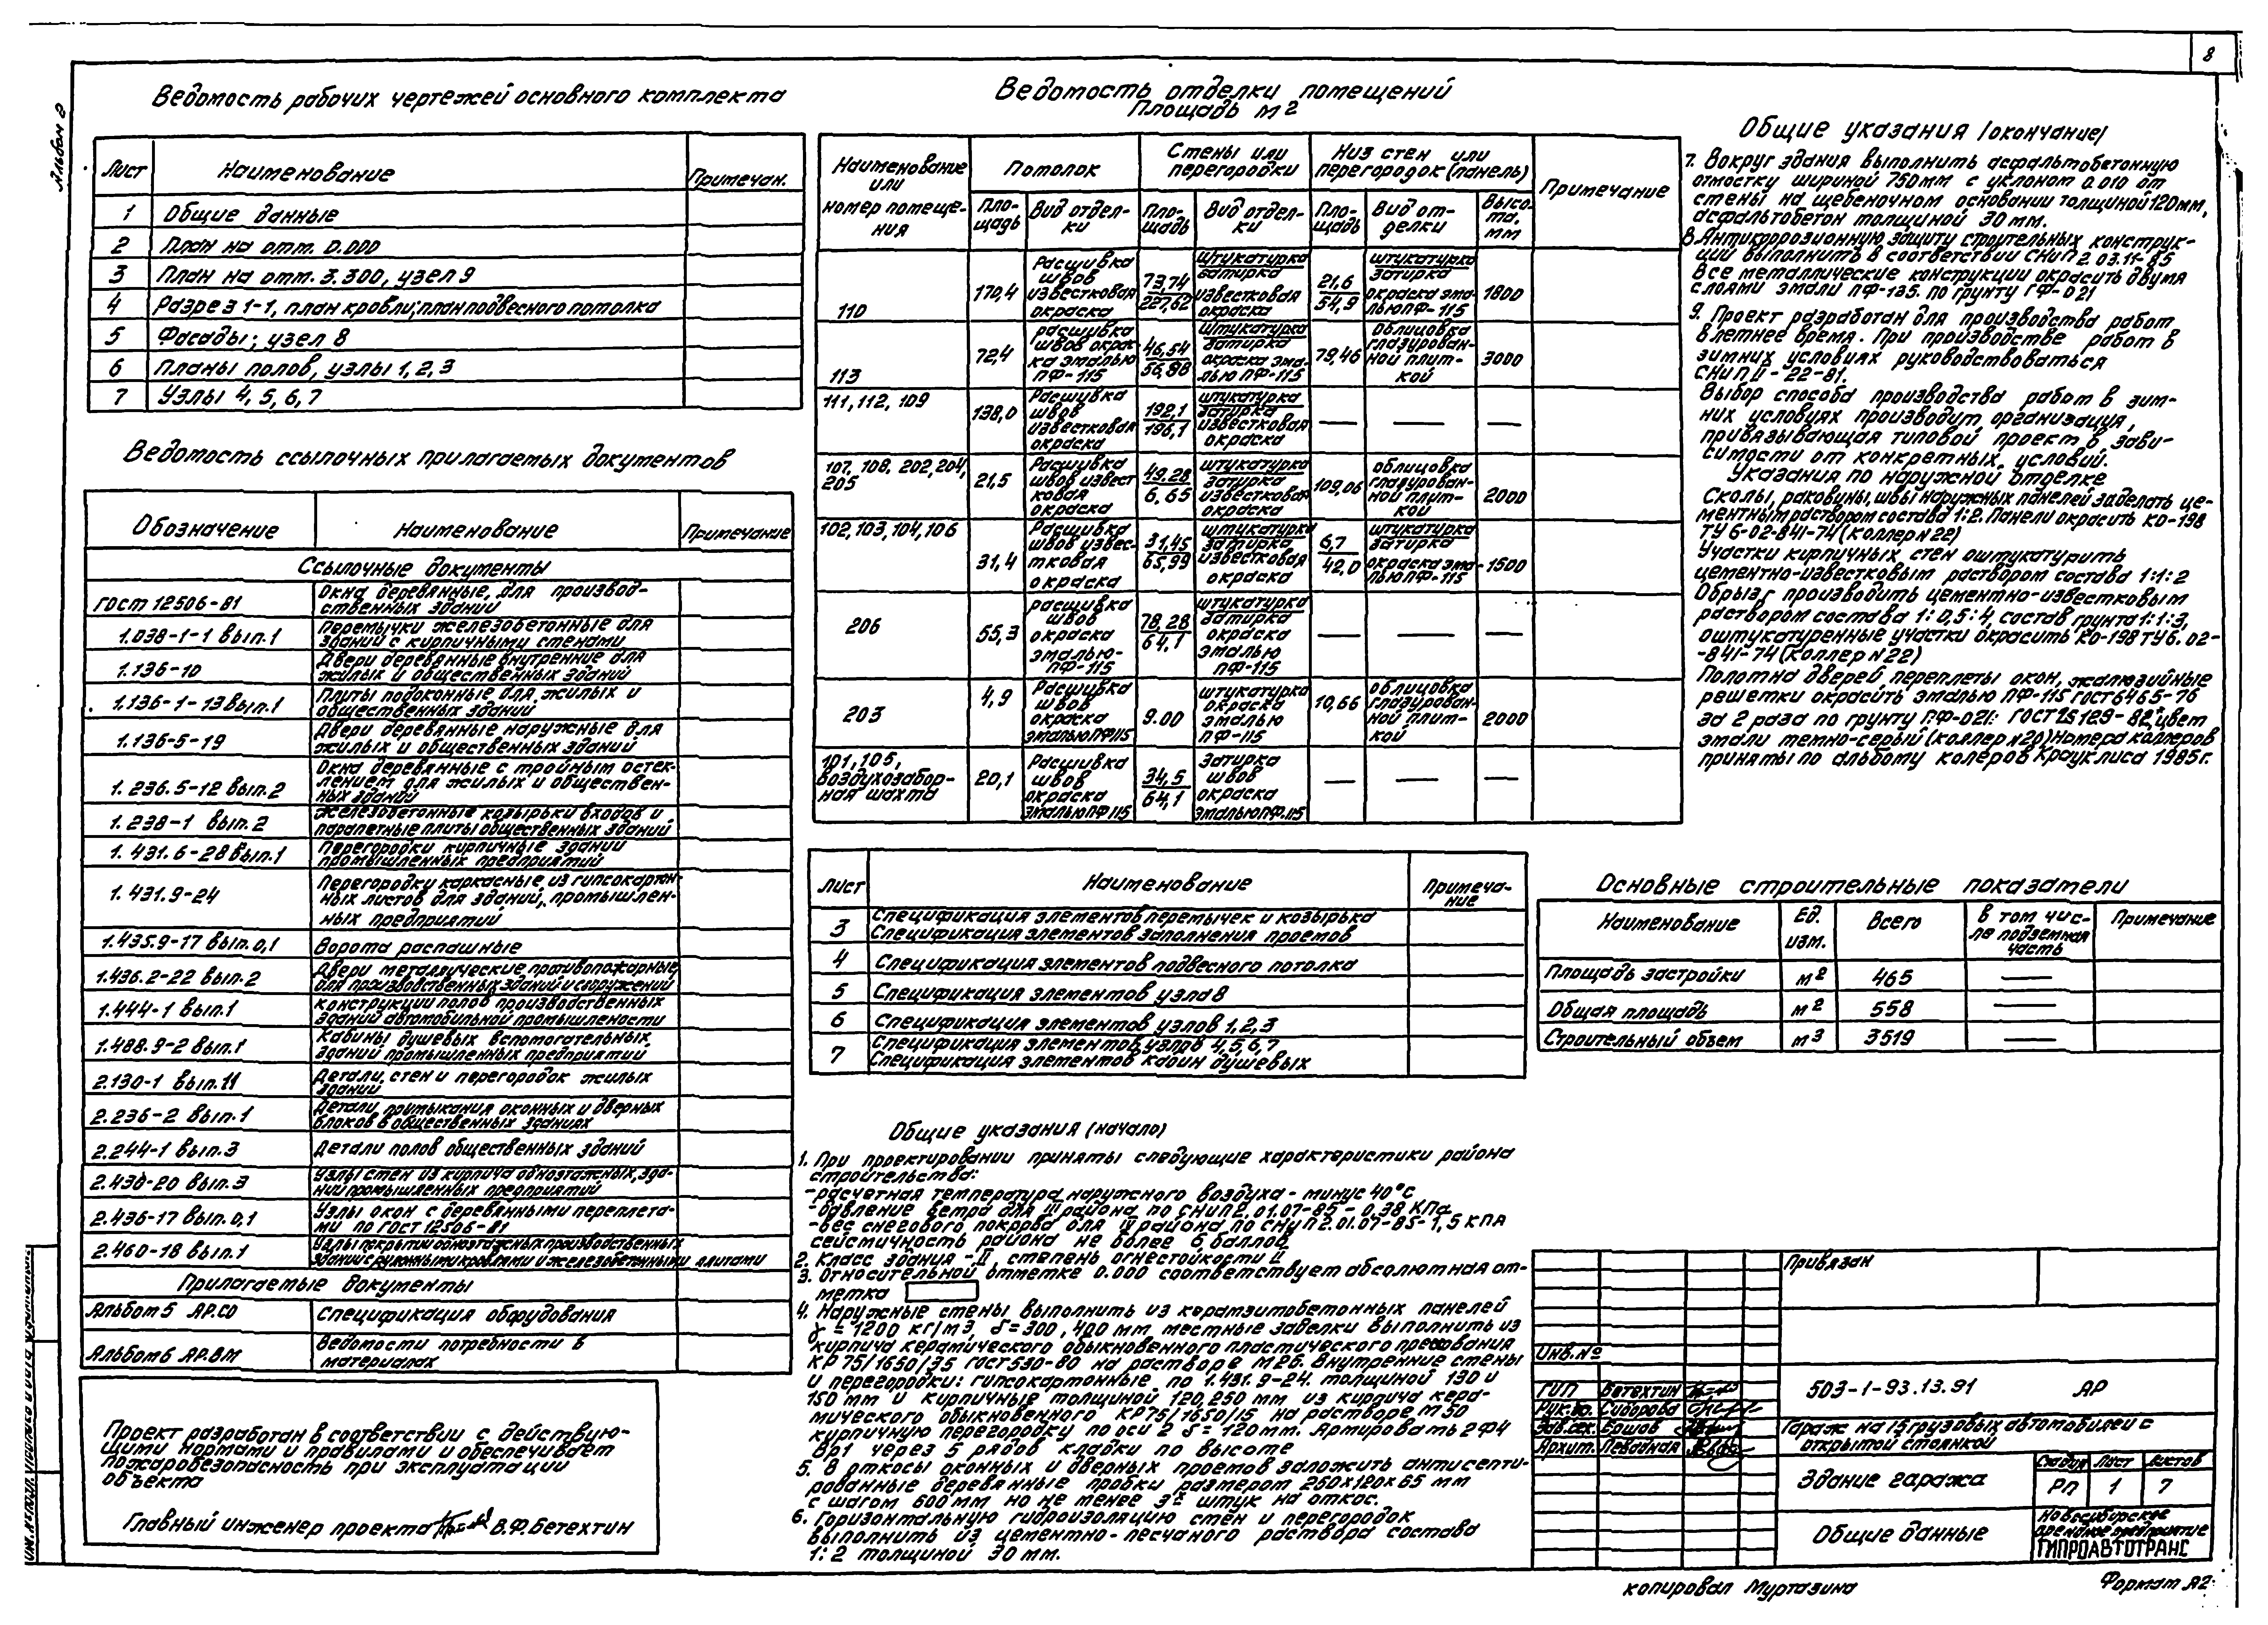 8
Альбом 2
Ведомость рабочих чертежей основного комплекта
Лист Наименование Примечан.
1 Общие данные
2 План на отм. 0.000
3 План на отм. 3.300, узел 9
4 Разрез 1-1, план кровли; план подвесного потолка
5 Фасады; узел 8
6 Планы полов, узлы 1, 2, 3
7 Узлы 4, 5, 6, 7
Ведомость ссылочных прилагаемых документов
Обозначение Наименование Примечание
Ссылочные документы
ГОСТ 12506-81 Окна деревянные, для производ-
ственных зданий
1.038-1-1 вып.1 Перемычки железобетонные для
зданий с кирпичными стенами
1.136-10 Двери деревянные внутренние для
жилых и общественных зданий
1.136-1-13 вып.1 Плиты подоконные для жилых и
общественных зданий
1.136-5-19 Двери деревянные наружные для
жилых и общественных зданий
1.236.5-12 вып.2 Окна деревянные с тройным остек-
лением для жилых и обществен-
ных зданий
1.238-1 вып.2 Железобетонные козырьки входов и
парапетные плиты общественных зданий
1.431.6-28 вып.1 Перегородки кирпичные зданий
промышленных предприятий
1.431.9-24 Перегородки каркасные из гипсокартон-
ных листов для зданий, промышлен-
ных предприятий
1.435.9-17 вып.0,1 Ворота распашные
1.436.2-22 вып.2 Двери металлические противопожарные
для производственных зданий и сооружений
1.444-1 вып.1 Конструкции полов производственных
зданий автомобильной промышлености
1.488.9-2 вып.1 Кабины душевых вспомогательных,
зданий промышленных предприятий
2.130-1 вып.11 Детали, стен и перегородок жилых
зданий
2.236-2 вып.1 Детали примыкания оконных и дверных
блоков в общественных зданиях
2.244-1 вып.3 Детали полов общественных зданий
2.430-20 вып.3 Узлы стен из кирпича одноэтажных, зда-
ний промышленных предприятий
2.436-17 вып.0,1 Узлы окон с деревянными переплета-
ми по ГОСТ 12506-81
2.460-18 вып.1 Узлы покрытий одноэтажных производственных
зданий с рулонными кровлями и железобетонными плитами
Прилагаемые документы
Альбом 5 АР.СО Спецификация оборудования
Альбом 6 АР.ВМ Ведомости потребности в
материалах
Проект разработан в соответствии с действую-
щими нормами и правилами и обеспечивает
пожаробезопасность при эксплуатации
объекта
Главный инженер проекта В.Ф.Бетехтин
Ведомость отделки помещений
Площадь м2
Наименование или номер помеще-ния Потолок Стены или перегородки Низ стен или перегородок (панель) Примечание
Пло-щадь Вид отдел-ки Пло-щадь Вид отдел-ки Пло-щадь Вид от-делки Высо-та, мм
110 170,4 Расшивка швов известковая окраска 73,74 227,62 штукатурка затирка известковая окраска 21,6 54,9 штукатурка затирка окраска эма-лью ПФ-115 1800
113 72,4 расшивка швов окрас-ка эмалью ПФ-115 46,54 56,88 штукатурка затирка окраска эма-лью ПФ-115 79,46 облицовка глазурован-ной плит-кой 3000
111, 112, 109 138,0 Расшивка швов известковая окраска 192,1 196,1 штукатурка затирка известковая окраска — — —
107, 108, 202, 204, 205 21,5 Расшивка швов извест ковая окраска 49.28 6,65 штукатурка затирка известковая окраска 109,06 облицовка глазурован-ной плит-кой 2000
102, 103, 104, 106 31,4 Расшивка швов извес-тковая окраска 31,45 65,99 штукатурка затирка известковая окраска 6,7 42,0 штукатурка затирка окраска эма-лью ПФ-115 1500
206 55,3 расшивка швов окраска эмалью-ПФ-115 78,28 64,1 штукатурка затирка окраска эмалью ПФ-115 — — —
203 4,9 Расшивка швов окраска эмалью ПФ115 9.00 штукатурка окраска эмалью ПФ-115 10,66 облицовка глазурован-ной плит-кой 2000
101, 105, воздухозабор-ная шахта 20,1 Расшивка швов окраска эмалью ПФ115 34,5 64,1 Затирка швов окраска эмалью ПФ.115 — — —
Лист Наименование Примеча-ние
3 Спецификация элементов перемычек и козырька
Спецификация элементов заполнения проемов
4 Спецификация элементов подвесного потолка
5 Спецификация элементов узла 8
6 Спецификация элементов узлов 1, 2, 3
7 Спецификация элементов узлов 4, 5, 6, 7
Спецификация элементов кабин душевых
Общие указания (начало)
1. При проектировании приняты следующие характеристики района
строительства:
-расчетная температура наружного воздуха - минус 40°С
-давление ветра для III района по СНиП 2.01.07-85 - 0,38 КПа
-вес снегового покрова для IV района по СНиП 2.01.07-85-1,5 КПА
сейсмичность района не более 6 баллов
2. Класс здания - II степень огнестойкости II
3. Относительной отметке 0.000 соответствует абсолютная от-
метка
4. Наружные стены выполнить из керамзитобетонных панелей
γ = 1200 кг/м3, δ=300, 400 мм местные заделки выполнить из
кирпича керамического обыкновенного пластического пресования
КР 75/1650/35 ГОСТ 530-80 на растворе М 26. Внутренние стены
и перегородки: гипсокартонные по 1.431.9-24. толщиной 130 и
150 мм и кирпичные толщиной 120, 250 мм из кирпича кера-
мического обыкновенного КР75/1650/15 на растворе М 50
кирпичную перегородку по оси 2 δ = 120мм. Армировать 2Ф4
Вр1 через 5 рядов кладки по высоте
5. В откосы оконных и дверных проемов заложить антисепти-
рованные деревянные пробки размером 250х120х65 мм
с шагом 600 мм но не менее 3х штук на откос.
6. Горизонтальную гидроизоляцию стен и перегородок
выполнить из цементно-песчаного раствора состава
1:2 толщиной 30 мм.
Общие указания (окончание)
7. Вокруг здания выполнить асфальтобетонную
отмостку шириной 750мм с уклоном 0.010 от
стены на щебеночном основании толщиной 120мм,
асфальтобетон толщиной 30 мм.
8. Антикоррозионную защиту строительных конструк-
ций выполнить в соответствии СНиП 2.03.11-85
Все металлические конструкции окрасить двумя
слоями эмали ПФ-135. по грунту ГФ-021
9. Проект разработан для производства работ
в летнее время. При производстве работ в
зимних условиях руководствоваться
СНиП II-22-81.
Выбор способа производства работ в зим-
них условиях производит, организация,
привязывающая типовой проект в зави-
симости от конкретных условий.
Указания по наружной отделке
Сколы, раковины, швы наружных панелей заделать це-
ментным раствором состава 1:2. Панели окрасить КО-198
ТУ 6-02-841-74 (коллер N 22)
Участки кирпичных стен оштукатурить
цементно-известковым раствором состава 1:1:2
Обрызг производить цементно-известковым
раствором состава 1:0,5:4, состав грунта 1:1:3,
оштукатуренные участки окрасить КО-198 ТУ6.02-
-841-74 (коллер N 22)
Полотна дверей, переплеты окон, жалюзийные
решетки окрасить эмалью ПФ-115 ГОСТ 6465-76
за 2 раза по грунту ГФ-021: ГОСТ 25129-82*, цвет
эмали темно-серый (коллер N 20) Номера коллеров
приняты по альбому колеров Крауклиса 1985г.
Основные строительные показатели
Наименование Ед. изм. Всего в том чис-ле подземная часть Примечание
Площадь застройки м2 465 —
Общая площадь м2 558 —
Строительный объем м3 3519 —
Привязан
Инв.№
ГИП Бетехтин
Рук.бр. Сидорова
Зав.сек. Ершов
Архит. Левадная
503-1-93.13.91 АР
Гараж на 15 грузовых автомобилей с
открытой стоянкой
Здание гаража
Стадия Лист Листов
РП 1 7
Общие данные
Новосибирское
арендное предприятие
ГИПРОАВТОТРАНС
копировал Муртазина
Формат А2